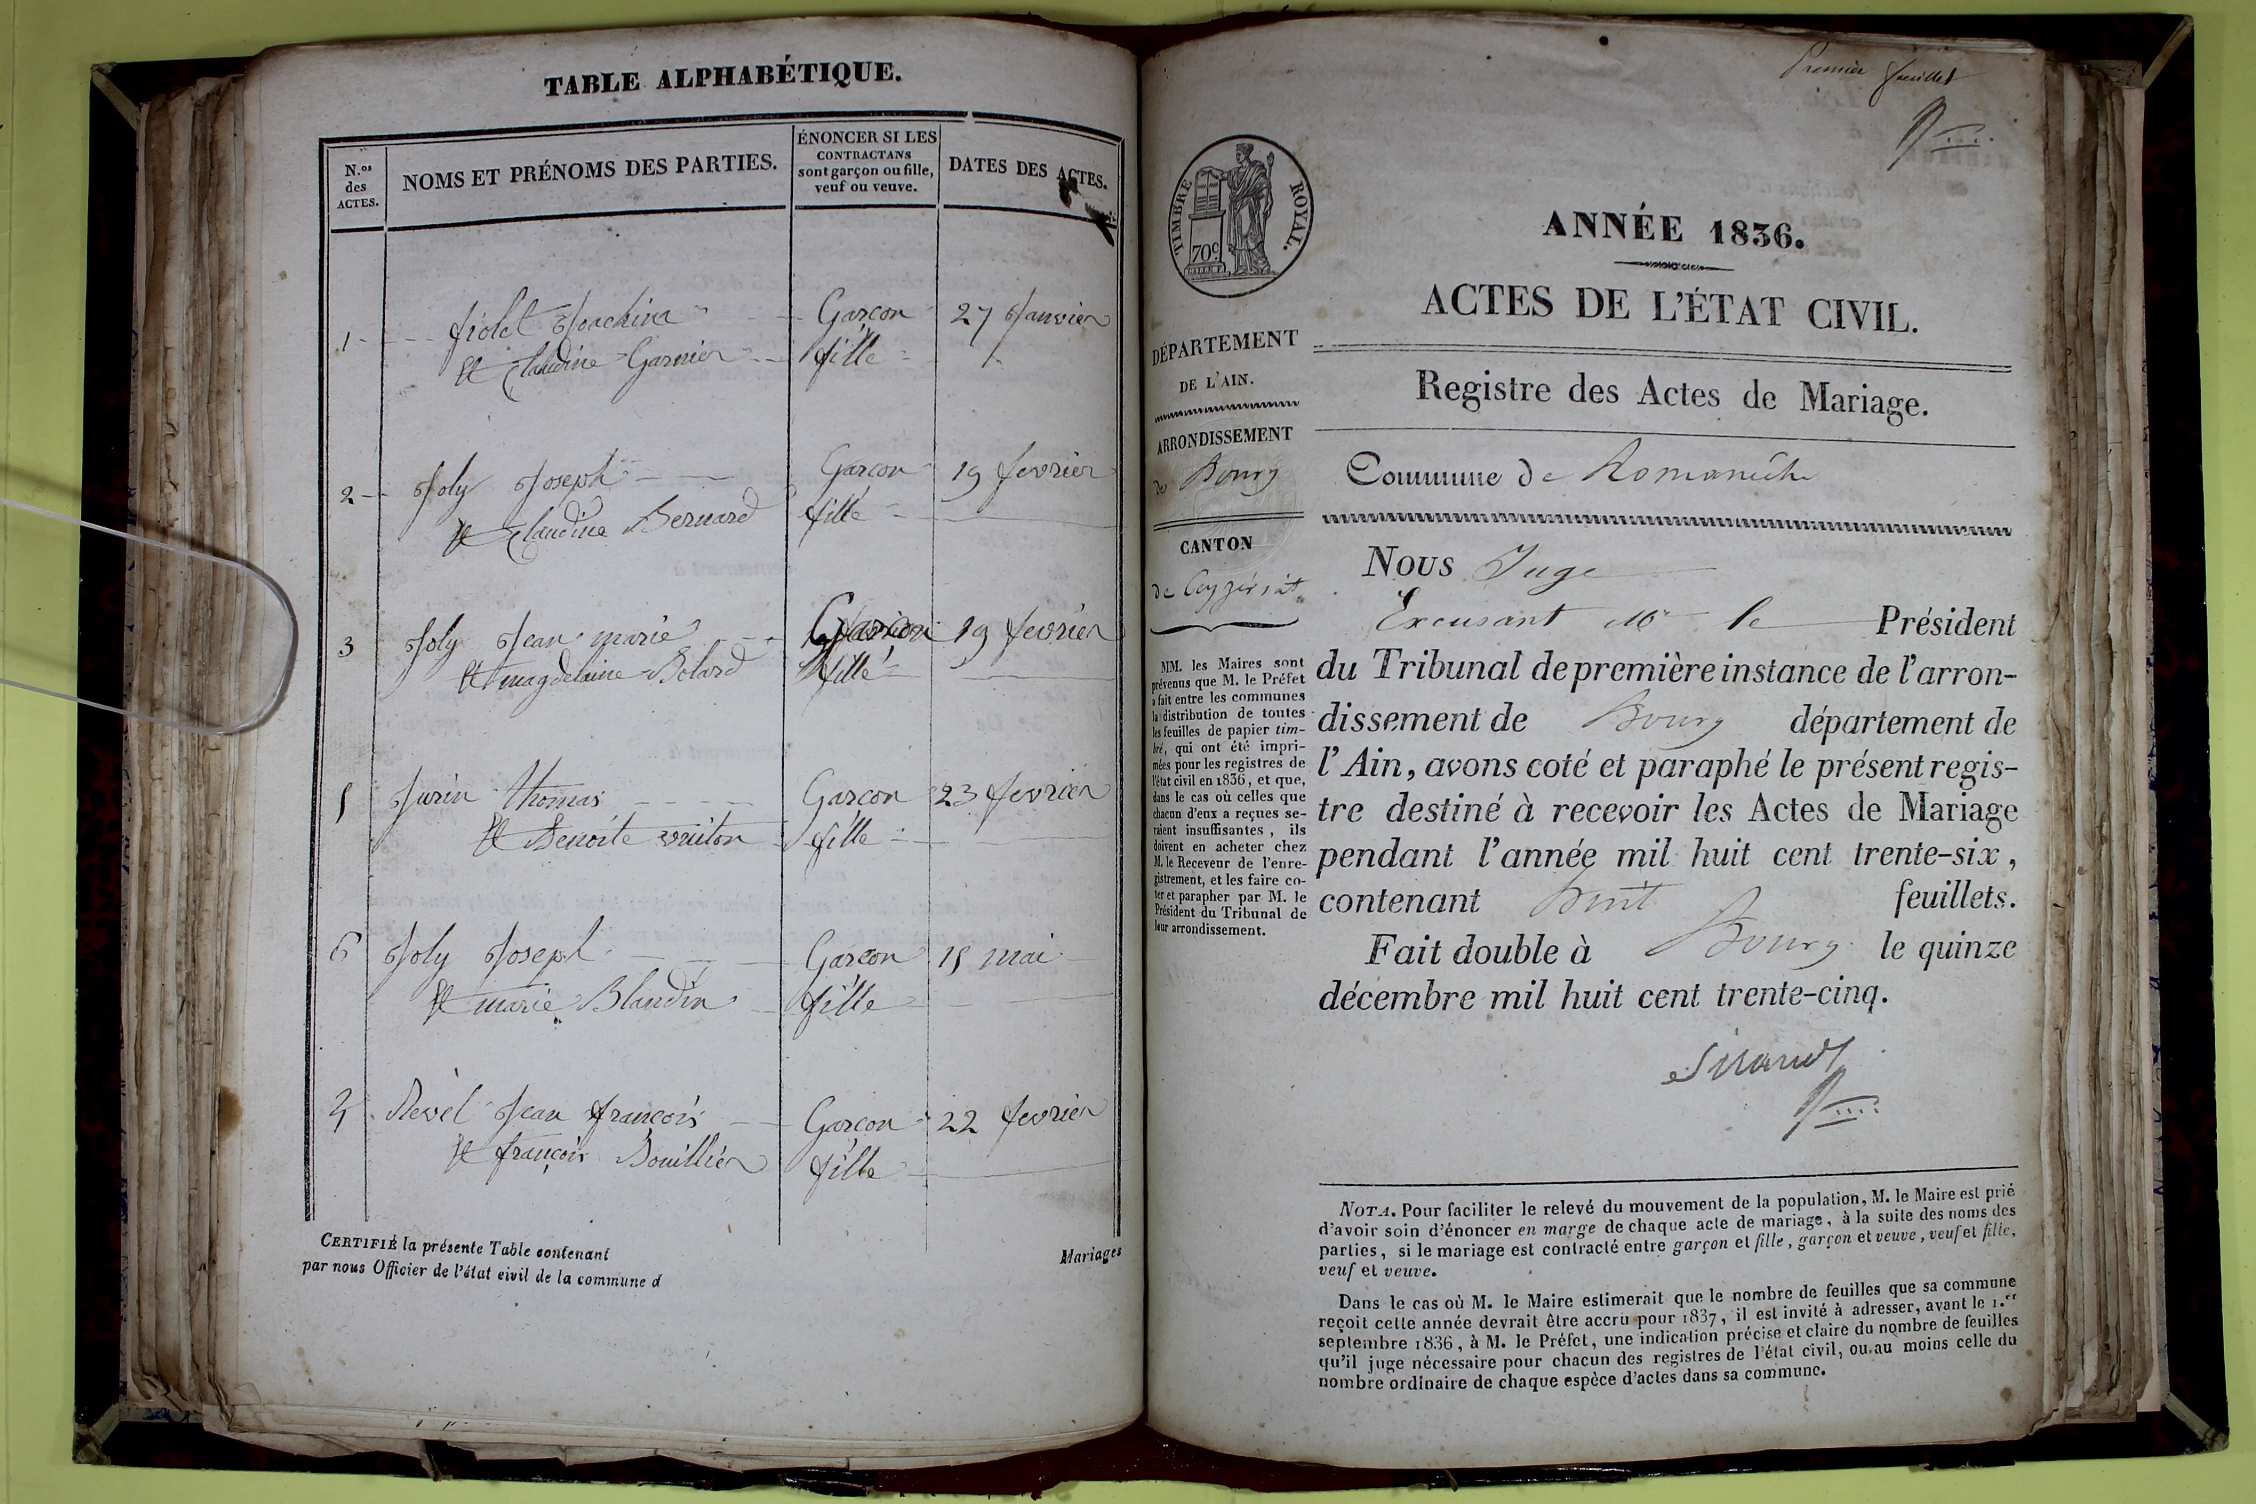 TABLE ALPHABÉTIQUE.
N.os des ACTES.
NOMS ET PRÉNOMS DES PARTIES.
ÉNONCER SI LES
CONTRACTANS
sont garçon ou fille,
veuf ou veuve.
DATES DES ACTES.
1 fiolet Joachim Garçon 27 Janvier
et Claudine Garnier fille
2 Joly Joseph Garcon 19 fevrier
et Claudine Bernard fille
3 Joly Jean marie Garcon 19 fevrier
et magdelaine Bolard fille
5 Jurin thomas Garcon 23 fevrier
et Benoite vuiton fille
6 Joly Joseph Garcon 15 mai
et marie Blandin fille
4 Revel Jean françois Garcon 22 fevrier
et françois Bouillier fille
CERTIFIÉ la présente Table contenant Mariages
par nous Officier de l'état civil de la commune d
Premier feuillet
TIMBRE ROYAL.
70c
ANNÉE 1836.
ACTES DE L'ÉTAT CIVIL.
Registre des Actes de Mariage.
Commune de Romanèche
DÉPARTEMENT
DE L'AIN.
ARRONDISSEMENT
de Bourg
CANTON
de Ceyzériat
MM. les Maires sont
prévenus que M. le Préfet
a fait entre les communes
la distribution de toutes
les feuilles de papier tim-
bré, qui ont été impri-
mées pour les registres de
l'état civil en 1836, et que,
dans le cas où celles que
chacun d'eux a reçues se-
raient insuffisantes, ils
doivent en acheter chez
M. le Receveur de l'enre-
gistrement, et les faire co-
ter et parapher par M. le
Président du Tribunal de
leur arrondissement.
Nous Juge
Excusant Mr le Président
du Tribunal de première instance de l'arron-
dissement de Bourg département de
l'Ain, avons coté et paraphé le présent regis-
tre destiné à recevoir les Actes de Mariage
pendant l'année mil huit cent trente-six,
contenant huit feuillets.
Fait double à Bourg le quinze
décembre mil huit cent trente-cinq.
Sirand
NOTA. Pour faciliter le relevé du mouvement de la population, M. le Maire est prié
d'avoir soin d'énoncer en marge de chaque acte de mariage, à la suite des noms des
parties, si le mariage est contracté entre garçon et fille, garçon et veuve, veuf et fille,
veuf et veuve.
Dans le cas où M. le Maire estimerait que le nombre de feuilles que sa commune
reçoit cette année devrait être accru pour 1837, il est invité à adresser, avant le 1.er
septembre 1836, à M. le Préfet, une indication précise et claire du nombre de feuilles
qu'il juge nécessaire pour chacun des registres de l'état civil, ou au moins celle du
nombre ordinaire de chaque espèce d'actes dans sa commune.